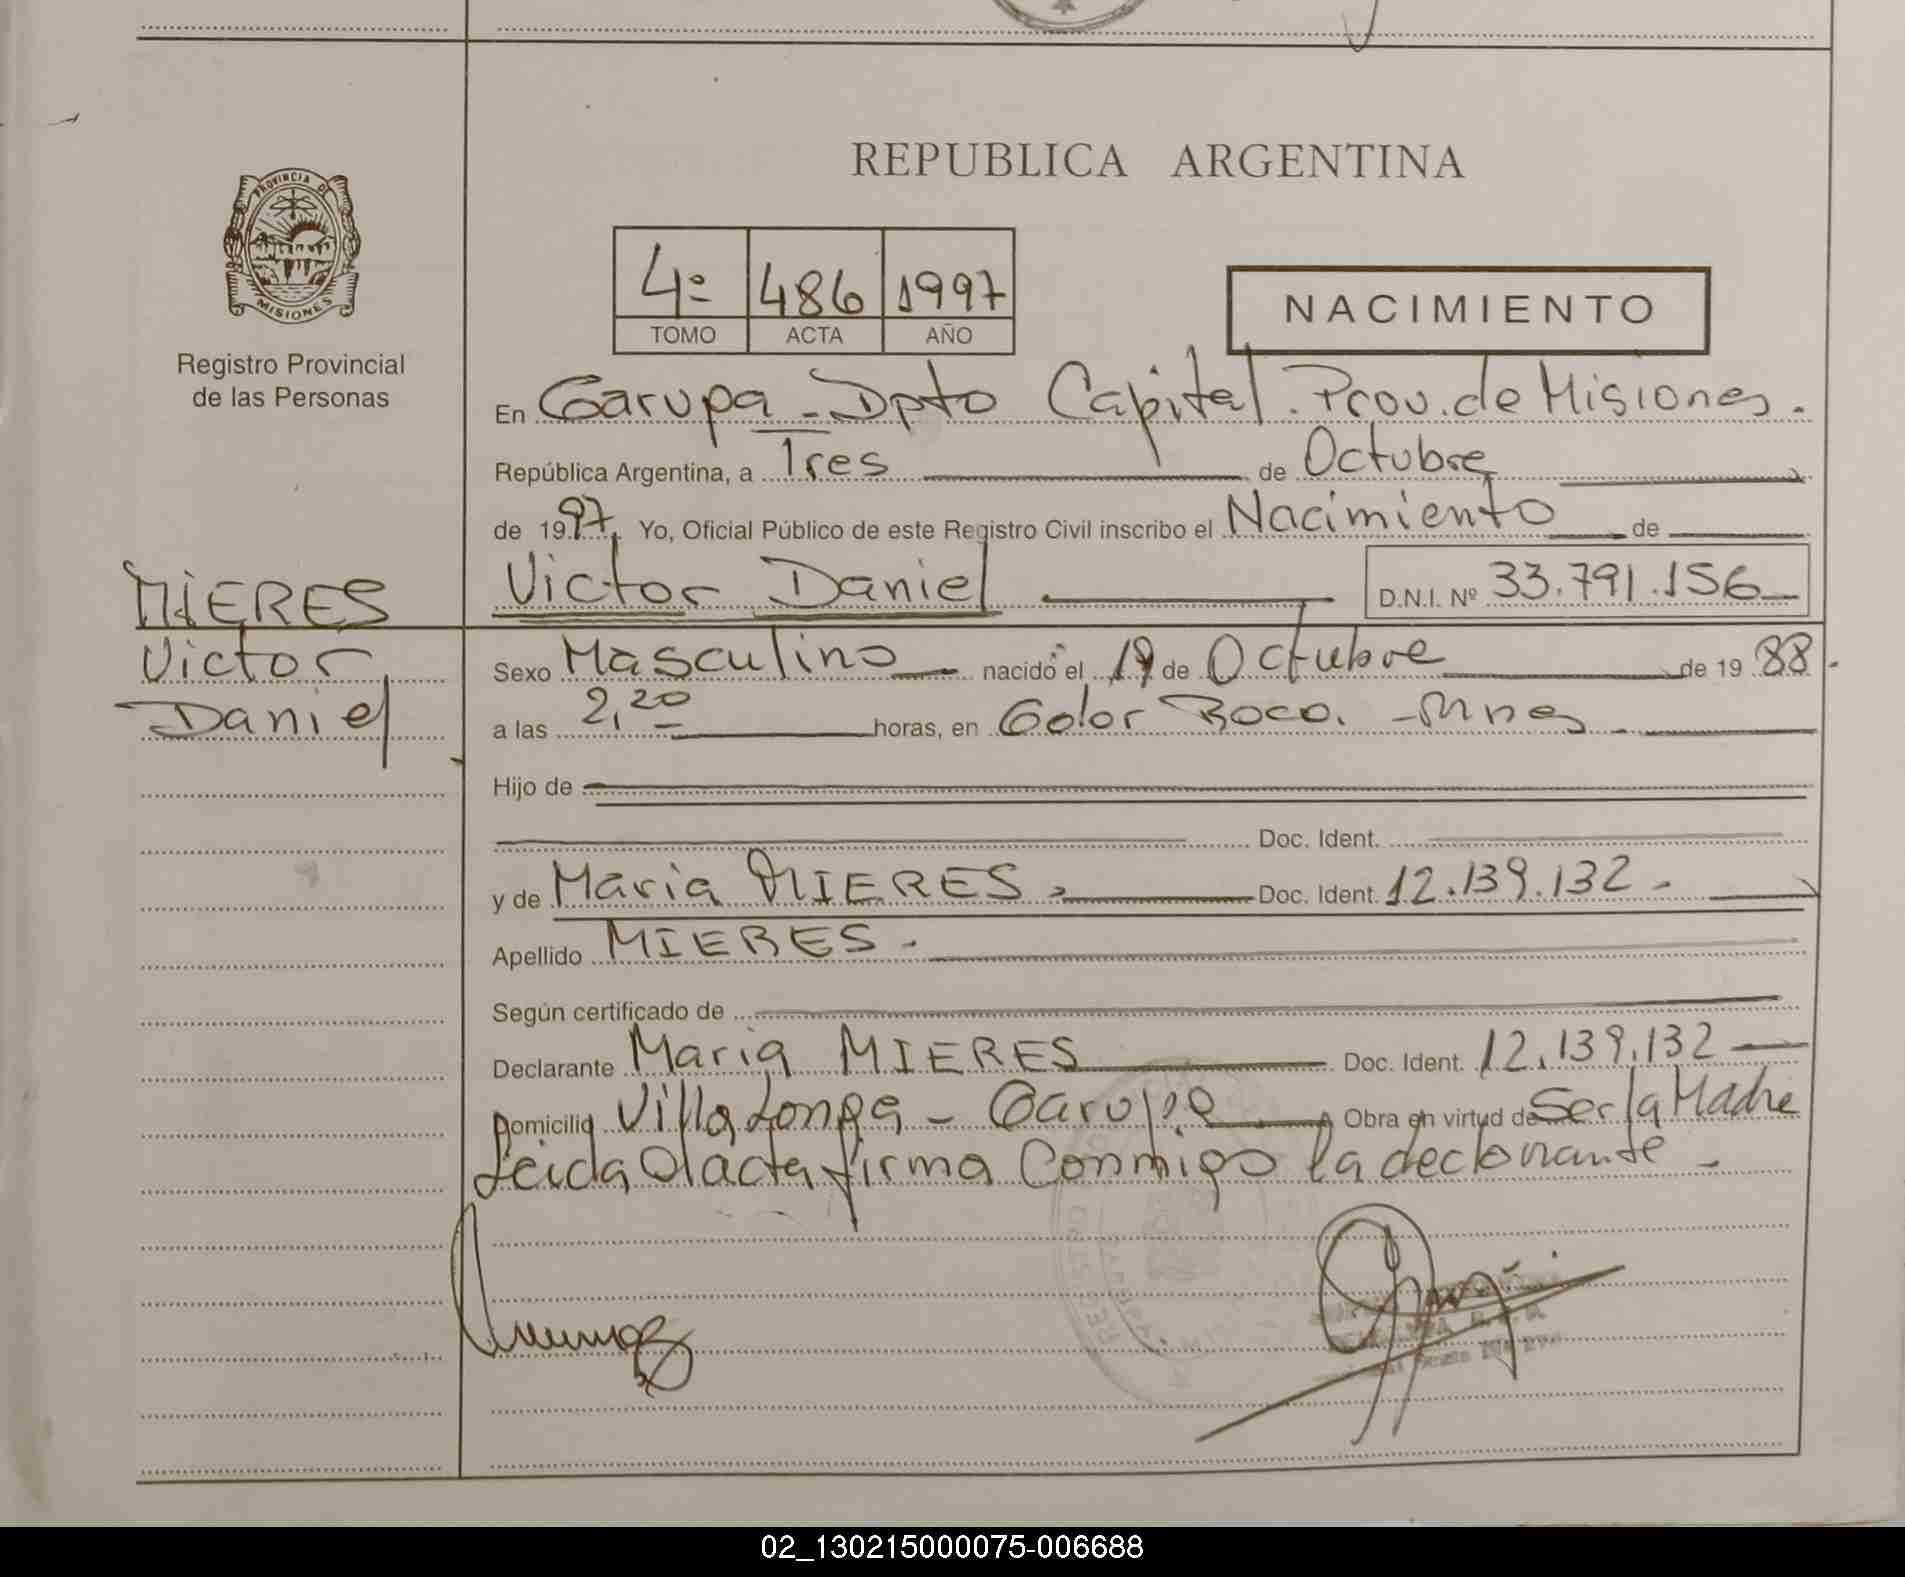 REPUBLICA ARGENTINA
PROVINCIA DE
MISIONES
Registro Provincial
de las Personas
4º 486 1997
TOMO ACTA AÑO
NACIMIENTO
En Garupa - Dpto Capital. Prov. de Misiones.
República Argentina, a Tres de Octubre
de 1997. Yo, Oficial Público de este Registro Civil inscribo el Nacimiento de
Victor Daniel D.N.I. Nº 33.791.156
MIERES
Victor
Daniel
Sexo Masculino nacido el 19 de Octubre de 1988.
a las 2,20 horas, en - Mnes
Hijo de
Doc. Ident.
y de Maria MIERES. Doc. Ident. 12.139.132.
Apellido MIERES.
Según certificado de
Declarante Maria MIERES Doc. Ident. 12.139.132
Domicilio Villa Longa - Garupa Obra en virtud de Ser la Madre
Leida el acta firma Conmigo la declarante.
02_130215000075-006688